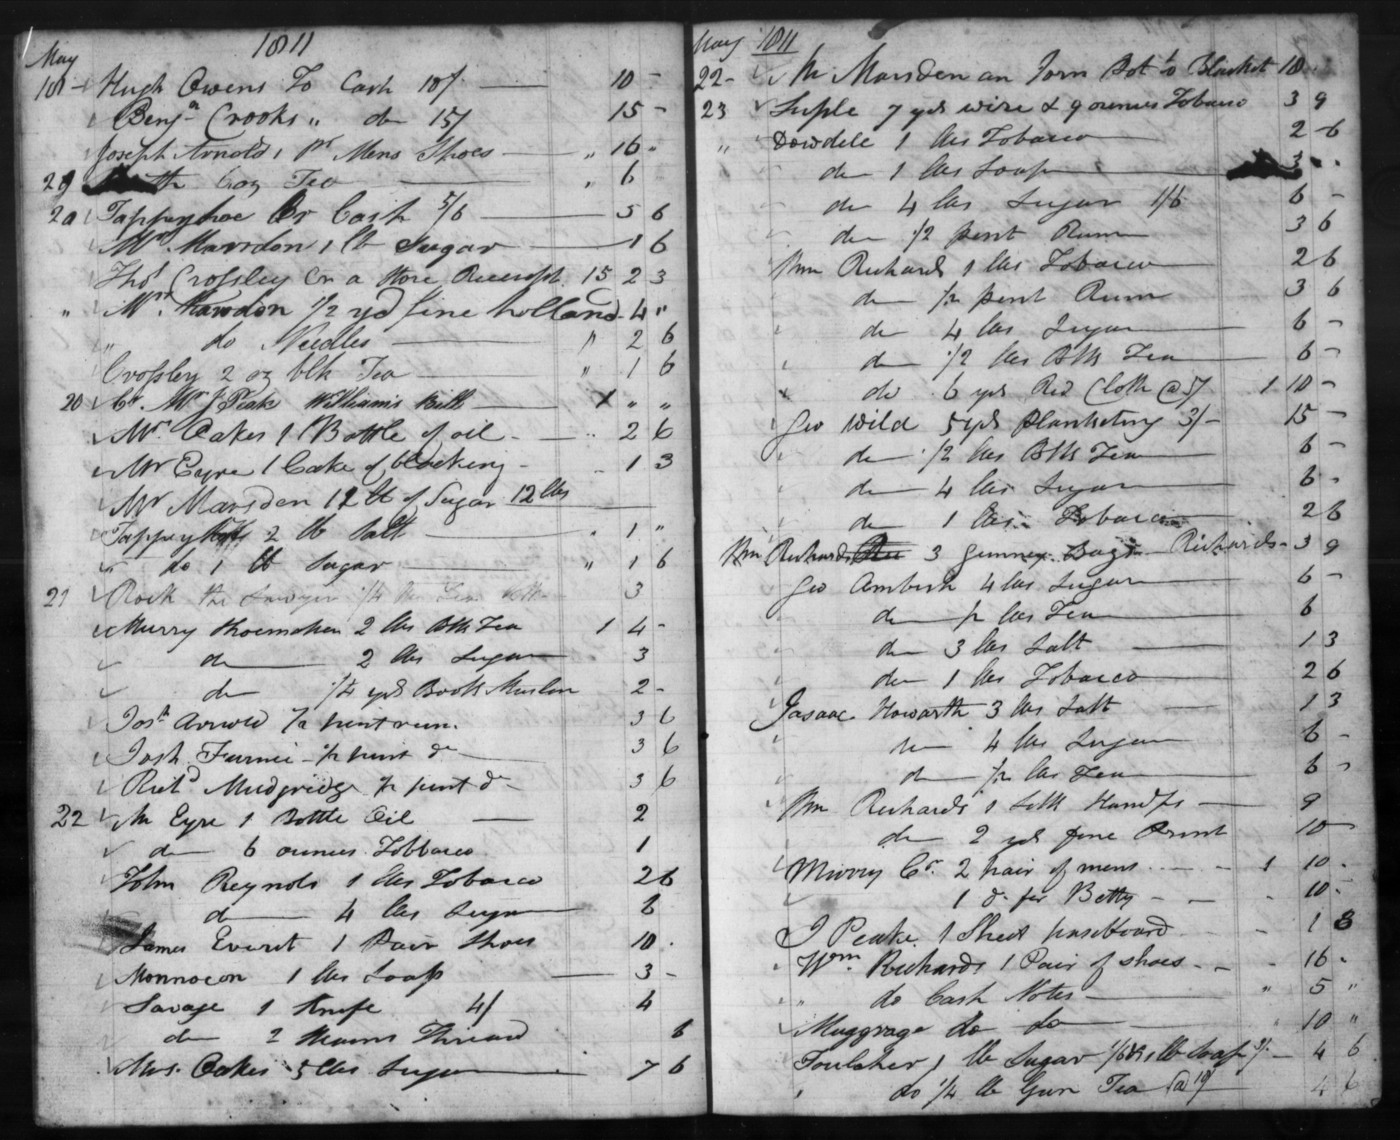 May 1811
18 - Hugh Owens To Cash 10/ 10 -
Benjn Crooks " do 15/ 15 -
Joseph Arnold 1 pr Mens Shoes " 16 "
Tea " 6
20 Tappyhoe Cr Cash 5/6 5 6
Mr. Marsden 1 lb Sugar 1 6
Thos Crossley Cr a Store Receipt 15 2 3
" Mrs. Marsdon 1/2 yd fine holland 4 "
" do Needles " 2 6
Crossley 2 oz blk Tea " 1 6
20 Cr. Mr J Peak Williams Bill X " "
Mrs. Oakes 1 Bottle of oil - " 2 6
Mr Eyre 1 Cake of blacking - 1 3
Mr Marsden 12 lb of Sugar 12 lbs
2 lb Salt " 1 "
do 1 lb Sugar " 1 6
21 Rock the Sawyer 1/4 lb 3
Murry Shoemaker 2 lbs Blk Tea 1 4 -
do 2 lbs Sugar 3
do 1/4 yds Book Muslin 2 -
Josh Arnold 1/2 pint rum. 3 6
Josh. Furnie 1/2 pint do 3 6
Richd Mudgridge 1/2 pint do 3 6
22 Mr Eyre 1 Bottle Oil 2
do 6 ounces Tobbacco 1
John Reynols 1 lbs Tobacco 2 6
do 4 lbs Sugar 6
James Everet 1 Pair Shoes 10 .
Monnocon 1 lbs Soap 3 -
Savage 1 Knife 4/ 4
do 2 Thread 6
Mrs. Oakes 5 lbs Sugar 7 6
May 1811
22 - Mr Marsden an Iron Pot to Blacket 18
23 Suple 7 yds wire & 9 ounces Tobacco 3 9
" Dowdele 1 lbs Tobacco 2 6
do 1 lbs Soap 3 .
do 4 lbs Sugar 1/6 6 -
do 1/2 pint Rum 3 6
Wm Richards 1 lbs Tobacco 2 6
do 1/2 pint Rum 3 6
do 4 lbs Sugar 6 -
do 1/2 lbs Blk Tea 6 -
do 6 yds Red Cloth @ 5/ 1 10 -
Geo Wild 5 yds Planketing 3/- 15 -
do 1/2 lbs Blk Tea 6 -
do 4 lbs Sugar 6 -
do 1 lbs Tobacco 2 6
Wm Richards 3 Gunney Bags Richards 3 9
Geo Ambish 4 lbs Sugar 6 -
do 1/2 lbs Tea 6
do 3 lbs Salt 1 3
do 1 lbs Tobacco 2 6
Jasaac Howarth 3 lbs Salt 1 3
do 4 lbs Sugar 6 -
do 1/2 lbs Tea 6 -
Wm Richards 1 Silk Handfs 9
do 2 yds fine Print 10 -
Murry Cr. 2 pair of mens 1 10 -
1 do for Betty 10 -
J Peake 1 Sheet pasteboard 1 3
Wm Richards 1 Pair of shoes 16 -
" do Cash Notes " 5 "
Muggrage do do 10 "
Foulcher 1 lb Sugar 1/6 & 1 lb Soap 3/- 4 6
do 1/4 lb Gun Tea @ 19/ 4 6